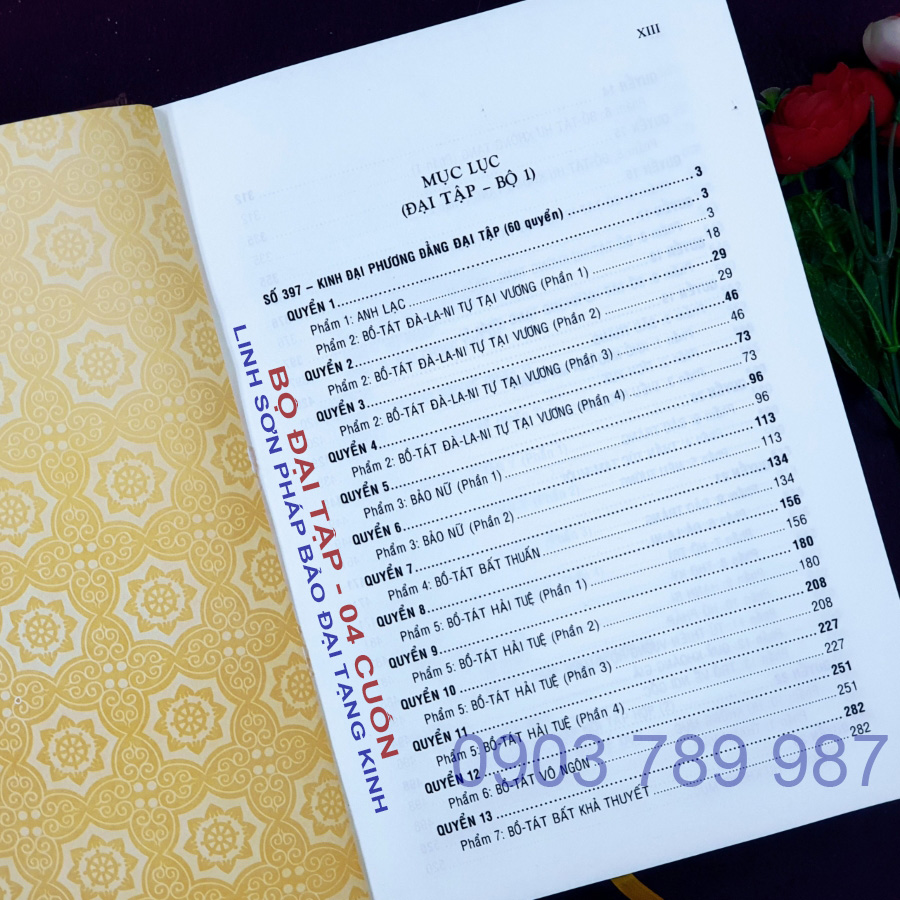 XIII
MỤC LỤC
(ĐẠI TẬP – BỘ 1)
SỐ 397 – KINH ĐẠI PHƯƠNG ĐẲNG ĐẠI TẬP (60 quyển) 3
QUYỂN 1 3
Phẩm 1: ANH LẠC 3
Phẩm 2: BỒ-TÁT ĐÀ-LA-NI TỰ TẠI VƯƠNG (Phần 1) 18
QUYỂN 2 29
Phẩm 2: BỒ-TÁT ĐÀ-LA-NI TỰ TẠI VƯƠNG (Phần 2) 29
QUYỂN 3 46
Phẩm 2: BỒ-TÁT ĐÀ-LA-NI TỰ TẠI VƯƠNG (Phần 3) 46
QUYỂN 4 73
Phẩm 2: BỒ-TÁT ĐÀ-LA-NI TỰ TẠI VƯƠNG (Phần 4) 73
QUYỂN 5 96
Phẩm 3: BẢO NỮ (Phần 1) 96
QUYỂN 6 113
Phẩm 3: BẢO NỮ (Phần 2) 113
QUYỂN 7 134
Phẩm 4: BỒ-TÁT BẤT THUẤN 134
QUYỂN 8 156
Phẩm 5: BỒ-TÁT HẢI TUỆ (Phần 1) 156
QUYỂN 9 180
Phẩm 5: BỒ-TÁT HẢI TUỆ (Phần 2) 180
QUYỂN 10 208
Phẩm 5: BỒ-TÁT HẢI TUỆ (Phần 3) 208
QUYỂN 11 227
Phẩm 5: BỒ-TÁT HẢI TUỆ (Phần 4) 227
QUYỂN 12 251
Phẩm 6: BỒ-TÁT VÔ NGÔN 251
QUYỂN 13 282
Phẩm 7: BỒ-TÁT BẤT KHẢ THUYẾT 282
BỘ ĐẠI TẬP - 04 CUỐN
LINH SƠN PHÁP BẢO ĐẠI TẠNG KINH
0903 789 987